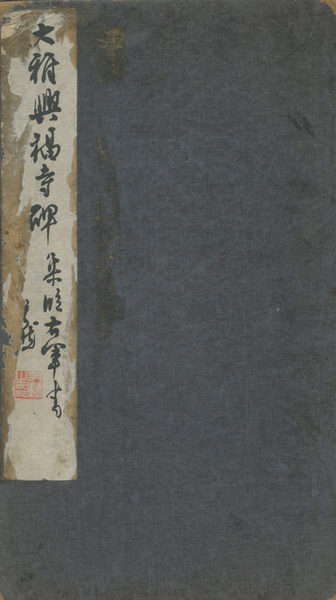 大雅興福寺碑 集右軍書